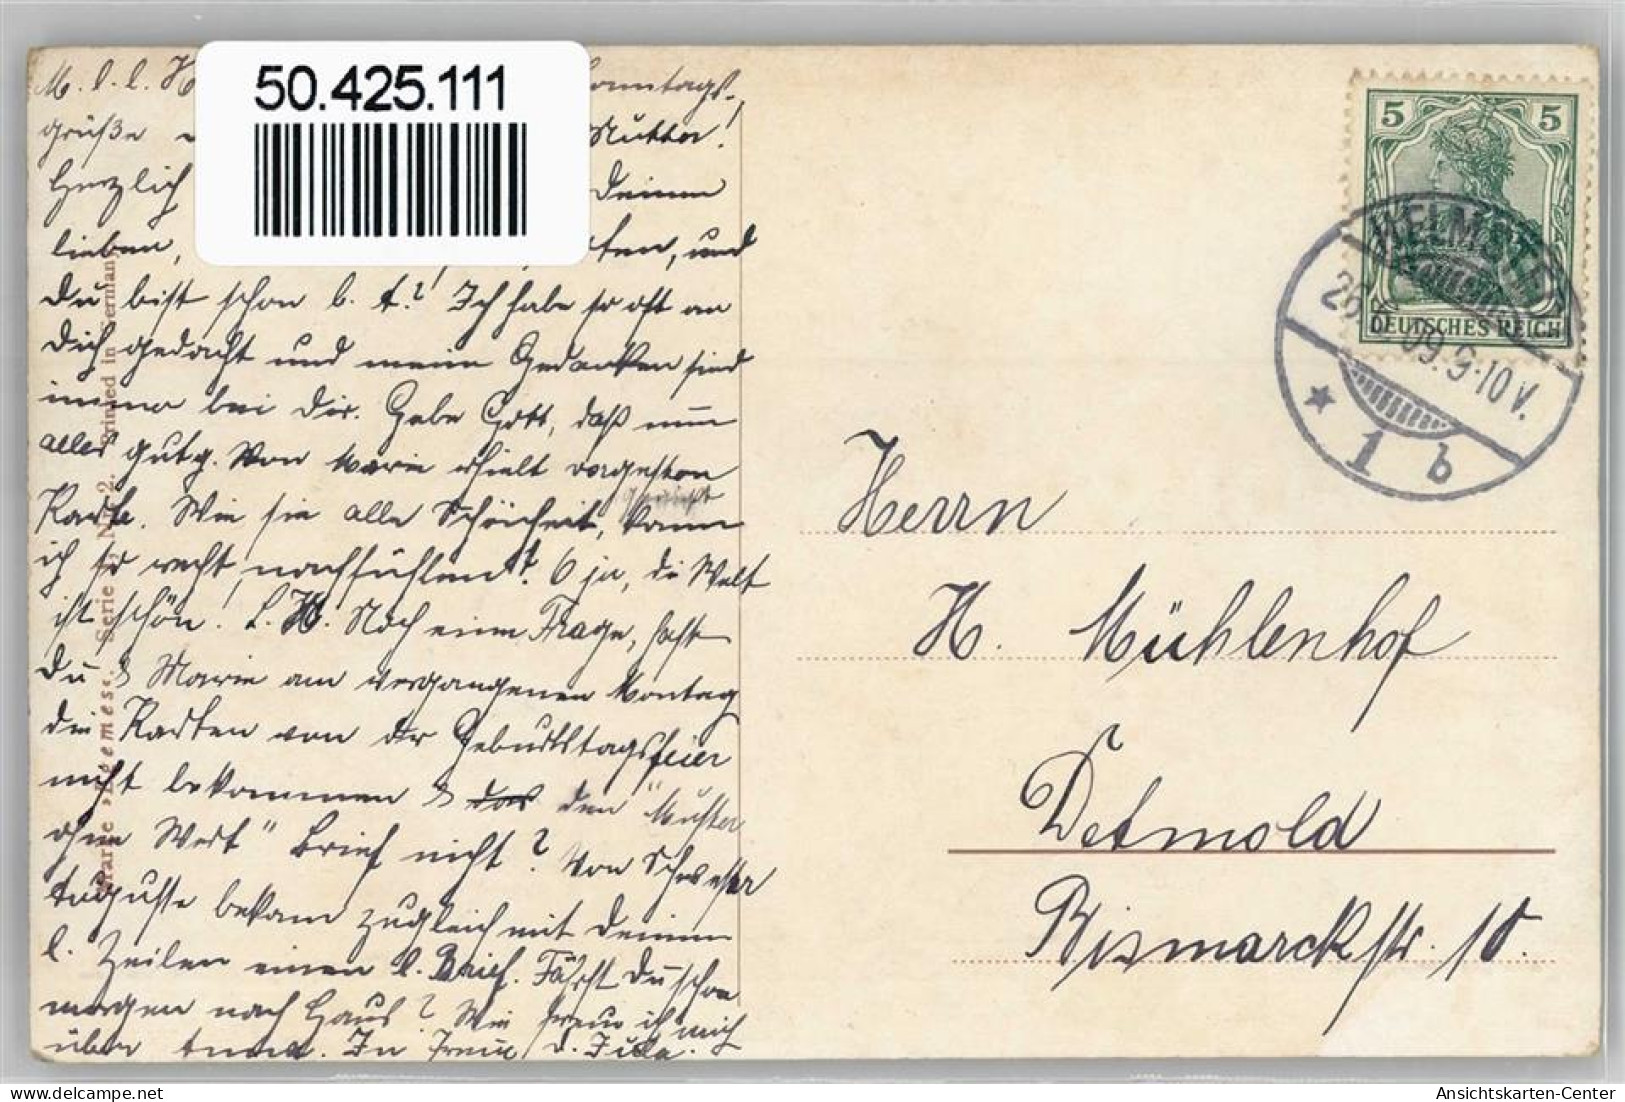 50.425.111
M. l. l. H
Sonntags-
grüße
Mutter!
Herzlich
Deinen
lieben,
und
Du bist schon b. A.? Ich habe so oft an
Dich gedacht und meine Gedanken sind
immer bei Dir. Gebe Gott, daß nun
alles gut g. Von Marie erhielt vorgestern
Karte. Wie sie alle Schönheit, kann
ich so recht nachfühlen! O ja, die Welt
ist schön! L. H. Noch eine Frage, hast
Du & Marie am vergangenen Montag
die Karten von der Geburtstagsfeier
nicht bekommen & das den "Muster
ohne Wert" Brief nicht? Von Schwester
Auguste bekam zugleich mit Deinen
l. Zeilen einen l. Brief. Fährst Du schon
morgen nach Haus? Wie freue ich mich
über In Treue D. Jula.
Marke Serie Nr. 2. Printed in Germany
5 5
DEUTSCHES REICH
HELMSTEDT
09. 9-10 V.
* 1 b
Herrn
H. Mühlenhof
Detmold
Bismarckstr. 10.
Ansichtskarten-Center